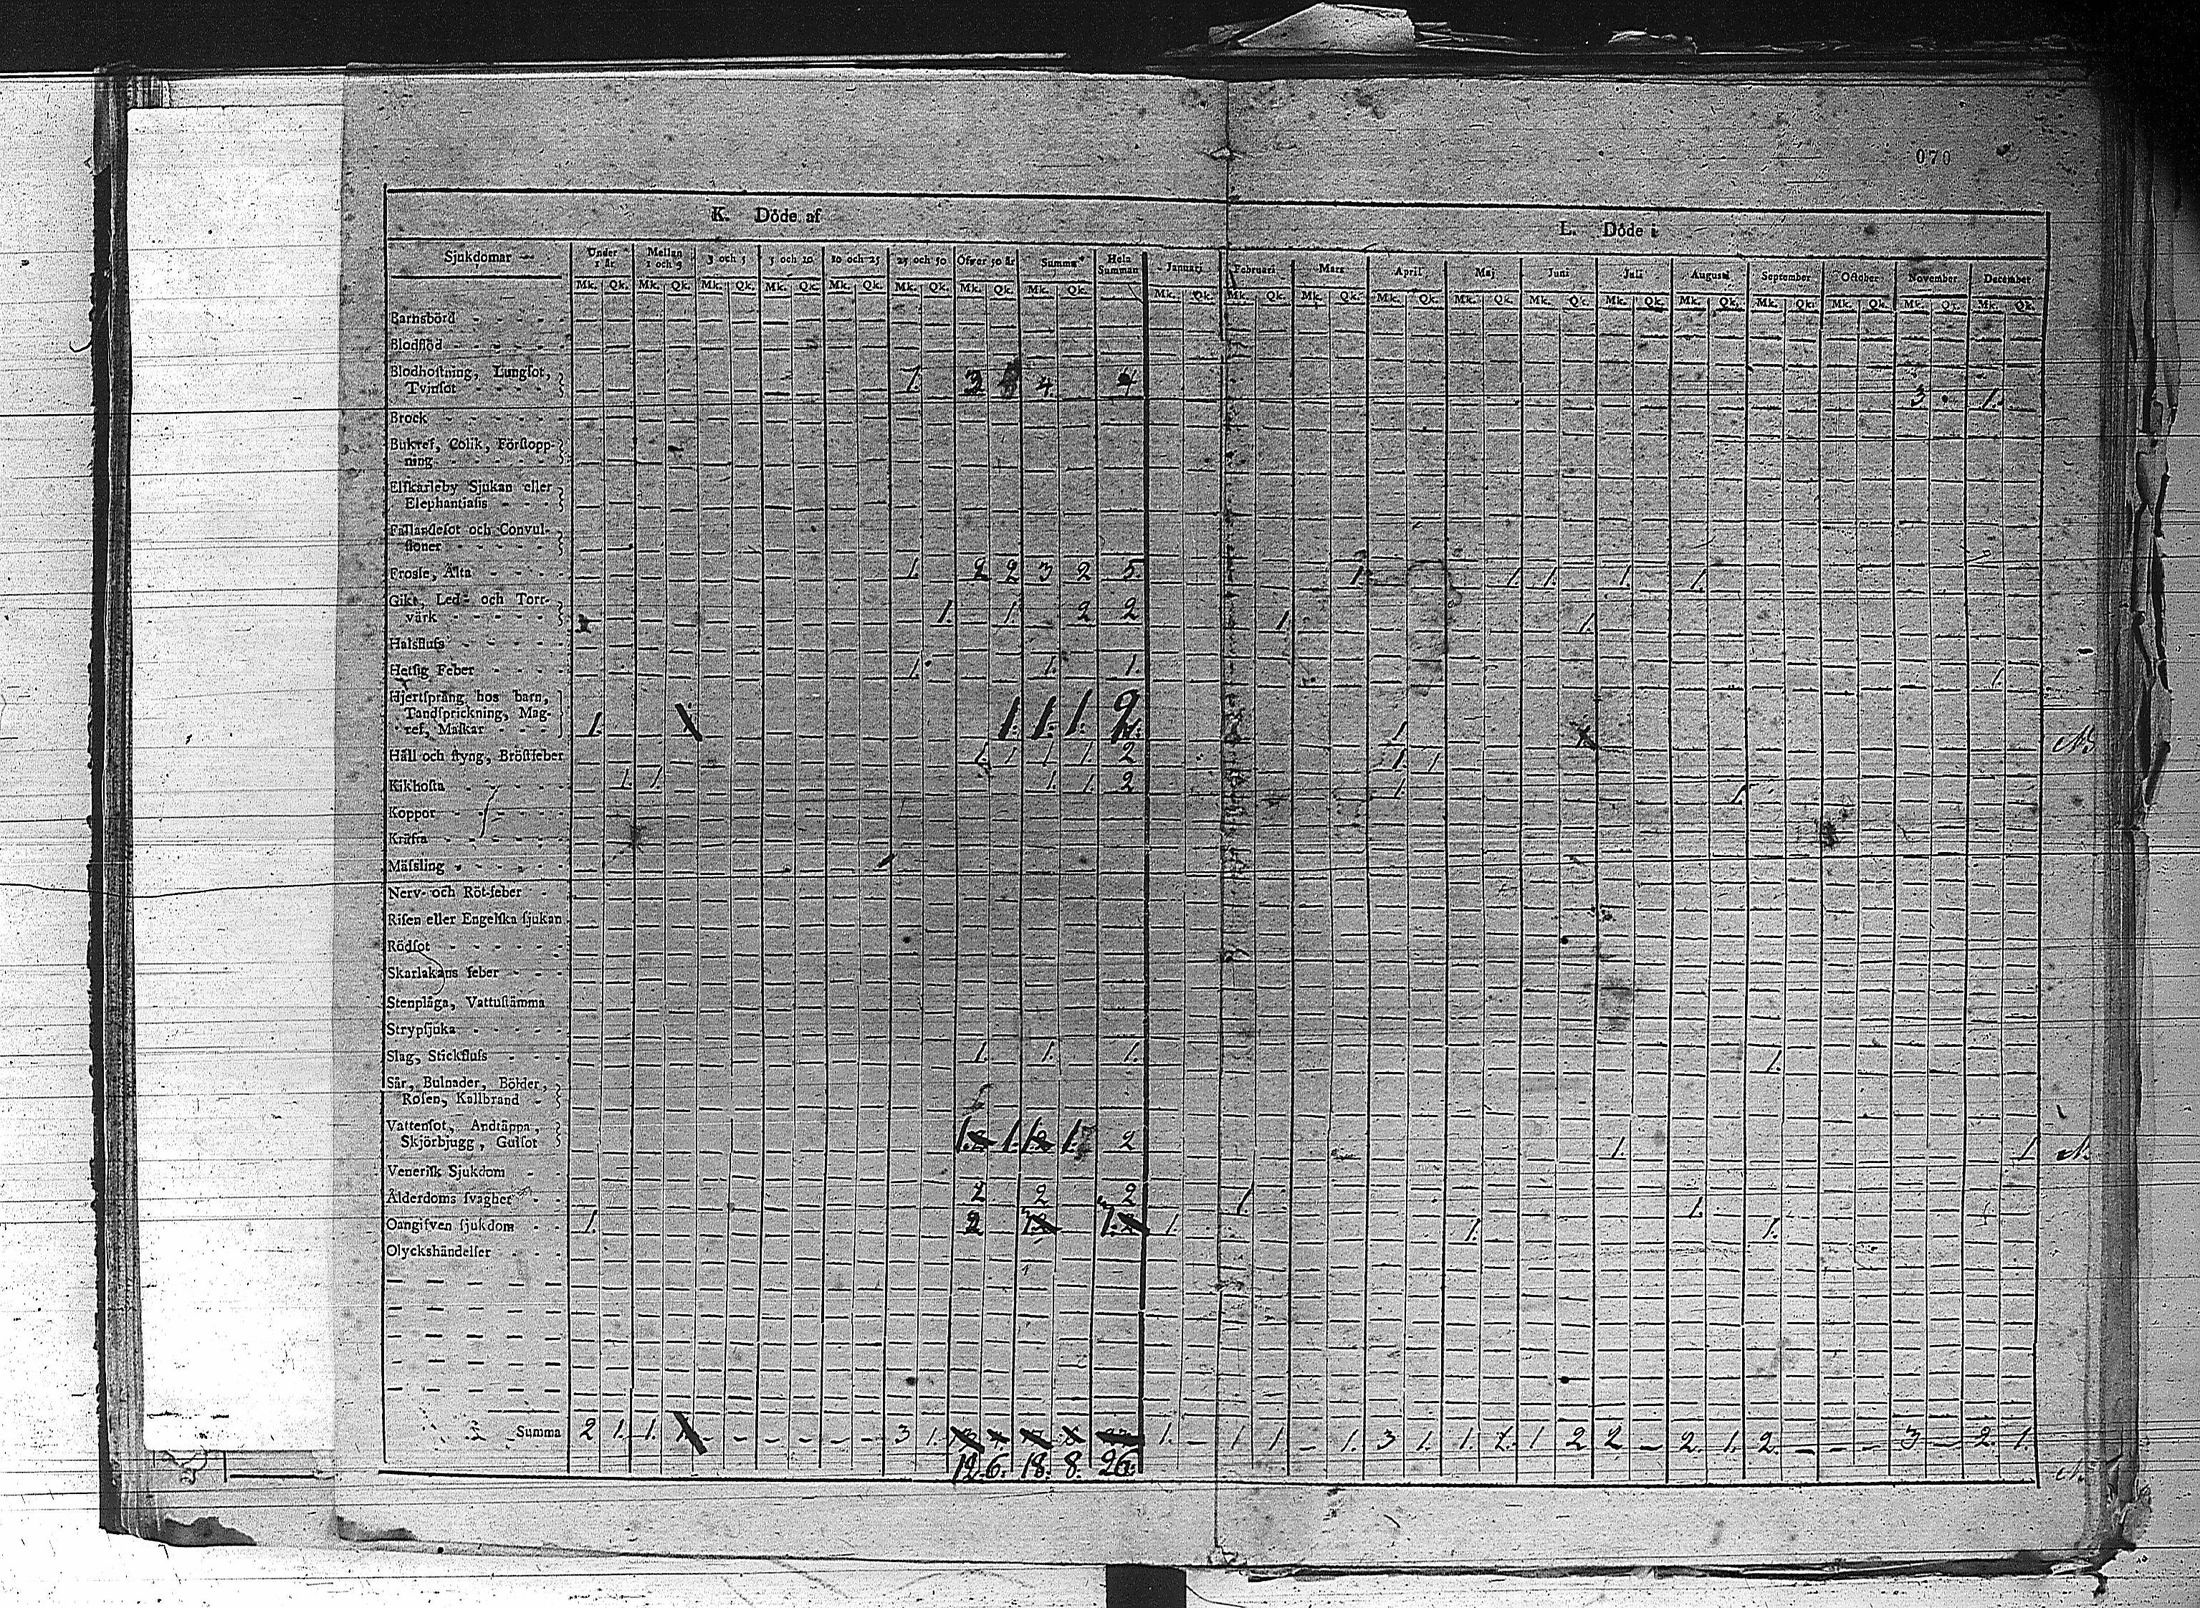 070
K. Döde af
L. Döde i
Sjukdomar Under 1 år Mellan 1 och 3 3 och 5 5 och 10 10 och 25 25 och 50 Öfver 50 år Summa Hela Summan Januari Februari Mars April Maj Junii Julii Augusti September October November December
Mk. Qk. Mk. Qk. Mk. Qk. Mk. Qk. Mk. Qk. Mk. Qk. Mk. Qk. Mk. Qk. Mk. Qk. Mk. Qk. Mk. Qk. Mk. Qk. Mk. Qk. Mk. Qk. Mk. Qk. Mk. Qk. Mk. Qk. Mk. Qk. Mk. Qk. Mk. Qk.
Barnsbörd
Blodflöd
Blodhostning, Lungsot,
Tvinsot 1. 3 4 4 3 1.
Brock
Bukref, Colik, Förstopp-
ning
Elfkarleby Sjukan eller
Elephantiasis
Fallandesot och Convul-
sioner
Frossa, Älta 1. 2 2 3 2 5. 1. 1. 1. 1. 1.
Gikt, Led- och Torr-
värk 1. 1. 2 2 1. 1.
Halsfluss
Hetsig Feber 1. 1. 1. 1.
Hjertsprång hos barn,
Tandsprickning, Mag-
ref, Maskar 1. 1. 1. 1. 2 1
Håll och styng, Bröstfeber 1. 1 1 1. 2 1. 1
Kikhosta 1. 1. 1. 1. 2 1. 1.
Koppor
Kräfta
Mässling
Nerv- och Röt-feber
Risen eller Engelska sjukan
Rödsot
Skarlakans feber
Stenplåga, Vattustämma
Strypsjuka
Slag, Stickfluss 1. 1. 1. 1.
Sår, Bulnader, Bölder,
Rosen, Kallbrand
Vattensot, Andtäppa,
Skjörbjugg, Gulsot 1. 1. 1. 1. 2 1. 1
Venerisk Sjukdom
Ålderdoms svaghet 2 2 2 1 1.
Oangifven sjukdom 1. 2 1. 1. 1.
Olyckshändelser
Summa 2 1. 1. 3 1. 1. 1 1 1. 3 1. 1. 1. 1 2 2 2. 1. 2. 3 2. 1.
12. 6. 18. 8. 26.